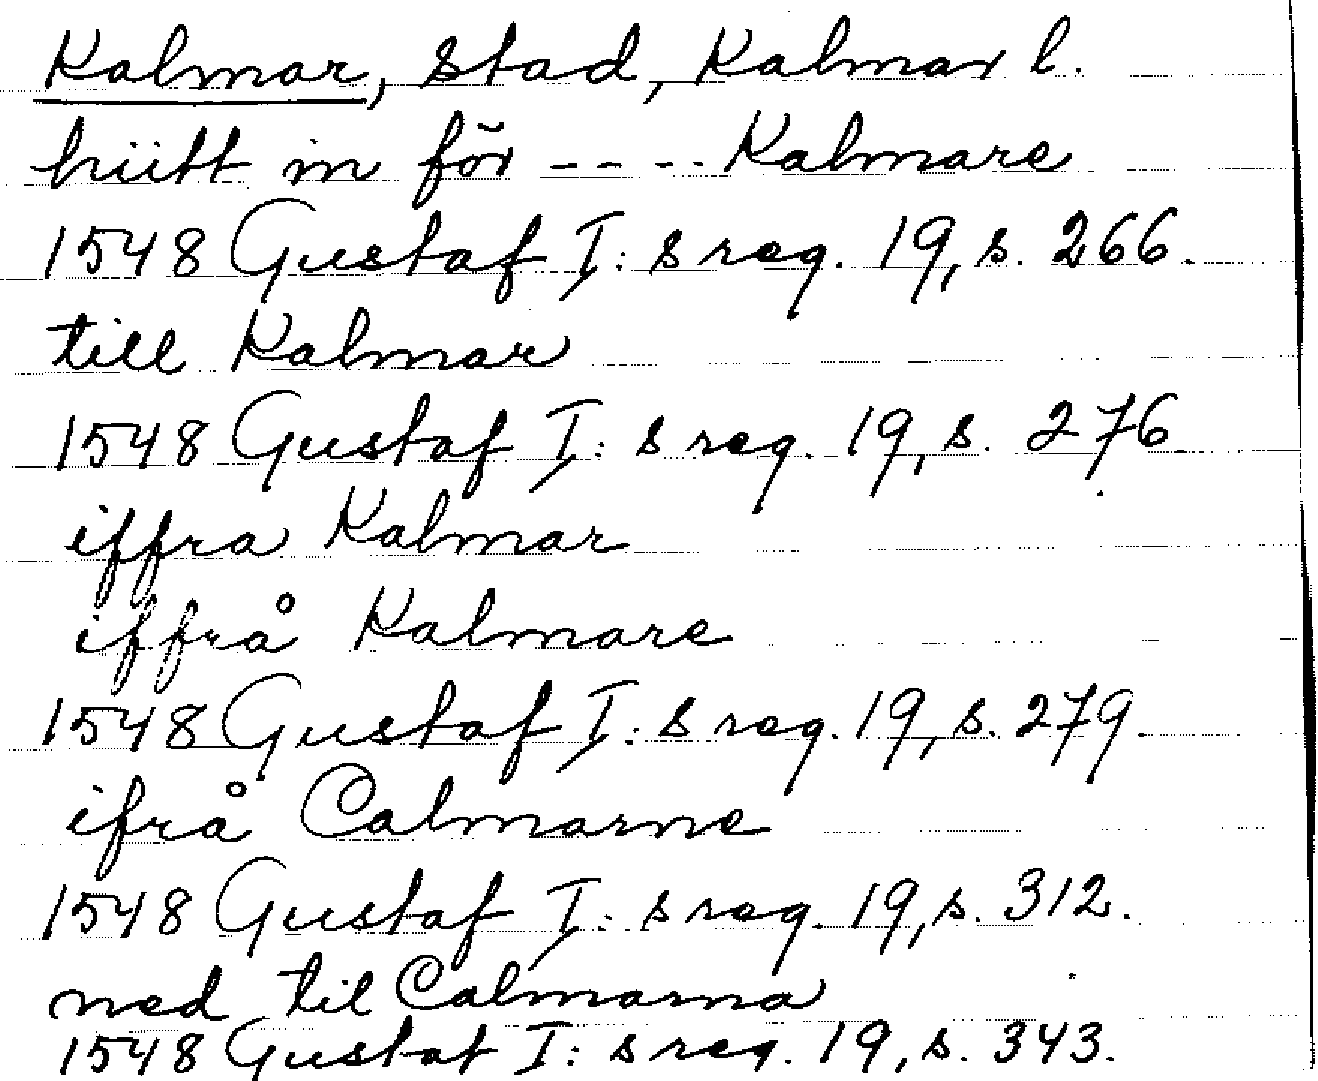 Kalmar, stad, Kalmar l.
hiitt in för ---- Kalmare
1548 Gustaf I:s reg. 19, s. 266.
till Kalmar
1548 Gustaf I:s reg. 19, s. 276
iffra Kalmar
iffrå Kalmare
1548 Gustaf I:s reg. 19, s. 279
ifrå Calmarne
1548 Gustaf I:s reg. 19, s. 312.
ned til Calmarna
1548 Gustaf I:s reg. 19, s. 343.